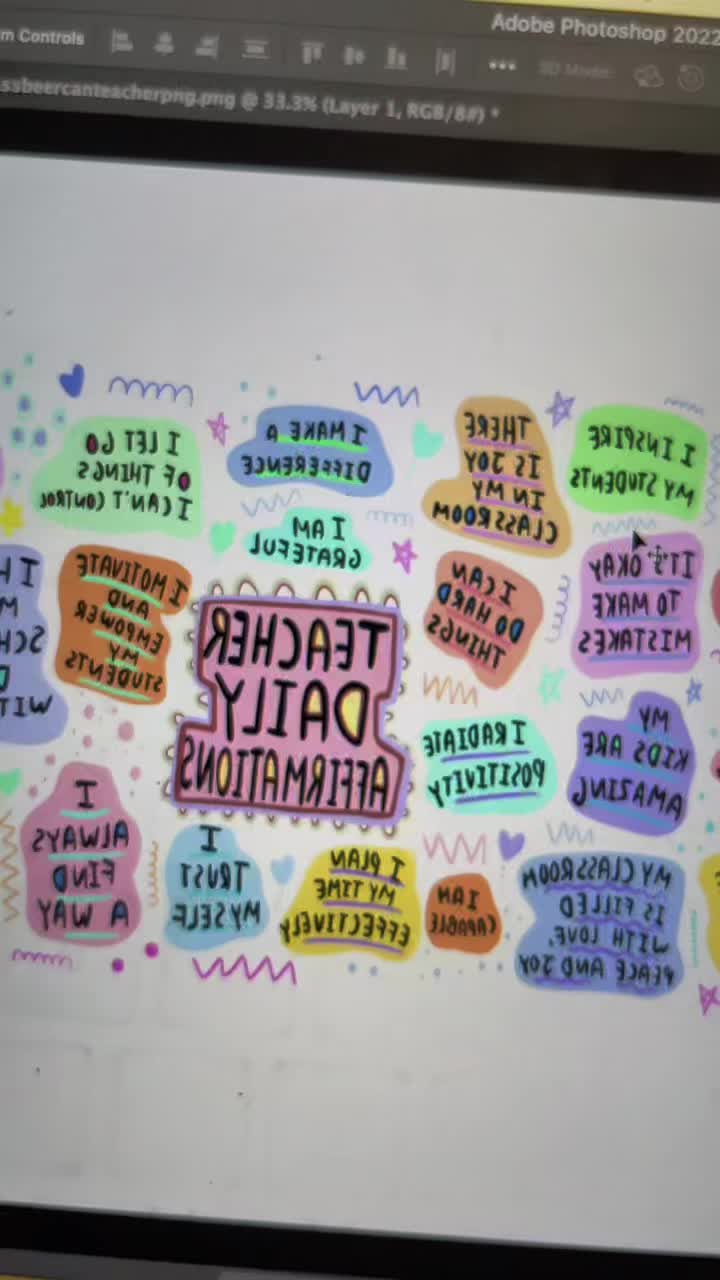 Adobe Photoshop 2022
m Controls
3D Mode:
ssbeercanteacherpng.png @ 33.3% (Layer 1, RGB/8#) *
I LET GO
OF THINGS
I CAN'T CONTROL
I MAKE A
DIFFERENCE
THERE
IS JOY
IN MY
CLASSROOM
I INSPIRE
MY STUDENTS
I AM
GRATEFUL
I MOTIVATE
AND
EMPOWER
MY
STUDENTS
TEACHER
DAILY
AFFIRMATIONS
I CAN
DO HARD
THINGS
IT'S OKAY
TO MAKE
MISTAKES
I RADIATE
POSITIVITY
MY
KIDS ARE
AMAZING
I
ALWAYS
FIND
A WAY
I
TRUST
MYSELF
I PLAN
MY TIME
EFFECTIVELY
I AM
CAPABLE
MY CLASSROOM
IS FILLED
WITH LOVE,
PEACE AND JOY